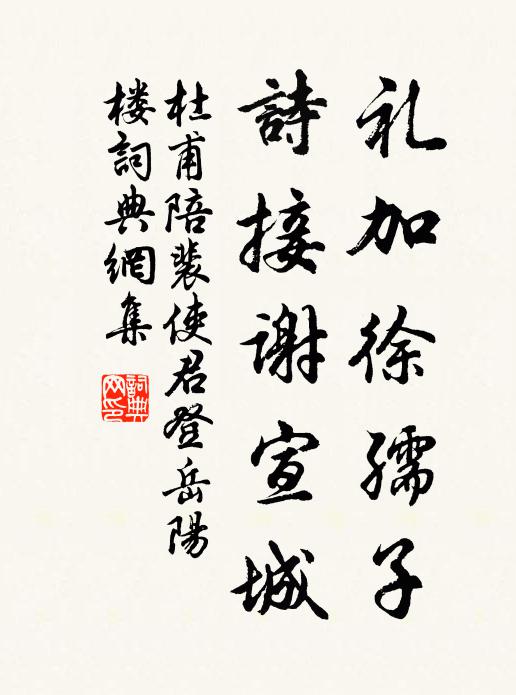 礼加徐孺子
詩接謝宣城
杜甫陪裴使君登岳陽
楼詞典網集
詞典
网印